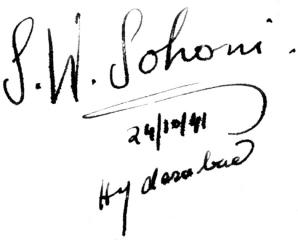 S.W. Sohoni.
24/10/41
Hyderabad